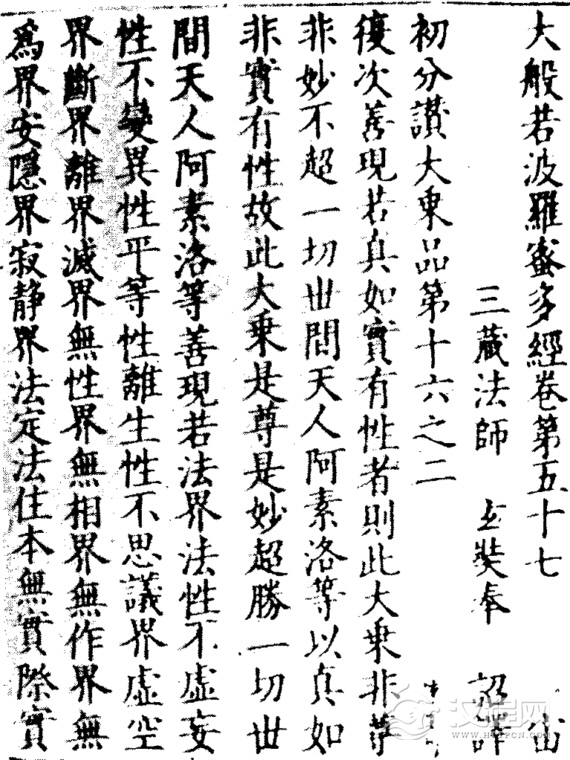 大般若波羅蜜多經卷第五十七 宙
三藏法師 玄奘奉 詔譯
初分讚大乗品第十六之二
復次善現若真如實有性者則此大乗非尊
非妙不超一切世間天人阿素洛等以真如
非實有性故此大乗是尊是妙超勝一切世
間天人阿素洛等善現若法界法性不虛妄
性不變異性平等性離生性不思議界虛空
界斷界離界滅界無性界無相界無作界無
爲界安隱界寂静界法定法住本無實際實
汉程网